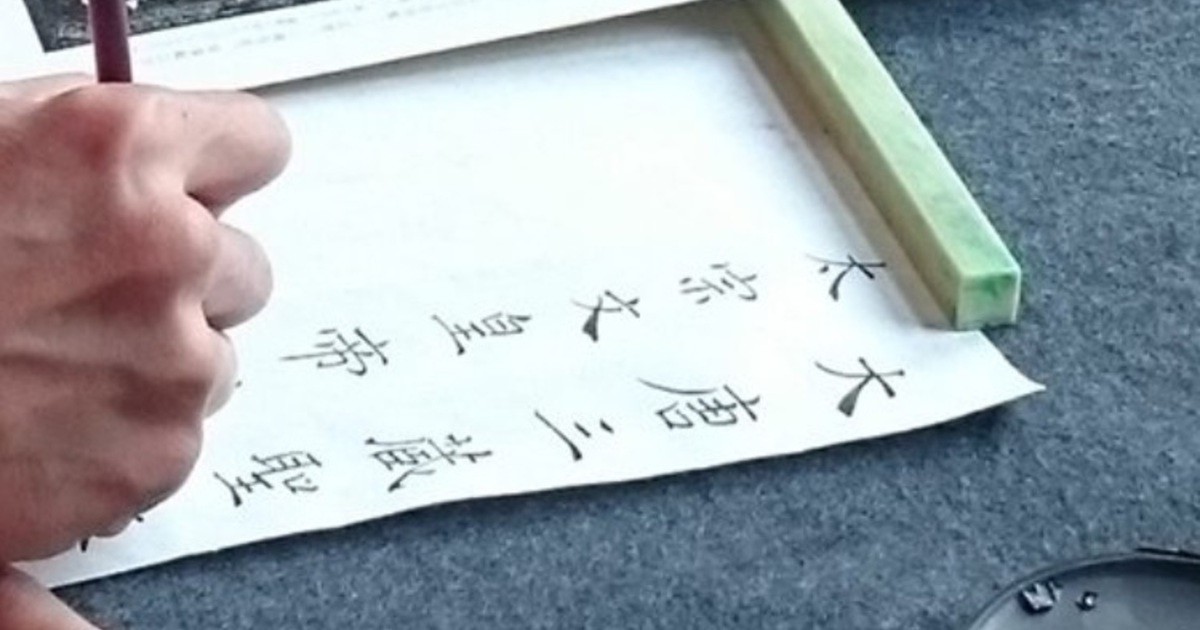 大唐三藏聖
太宗文皇帝